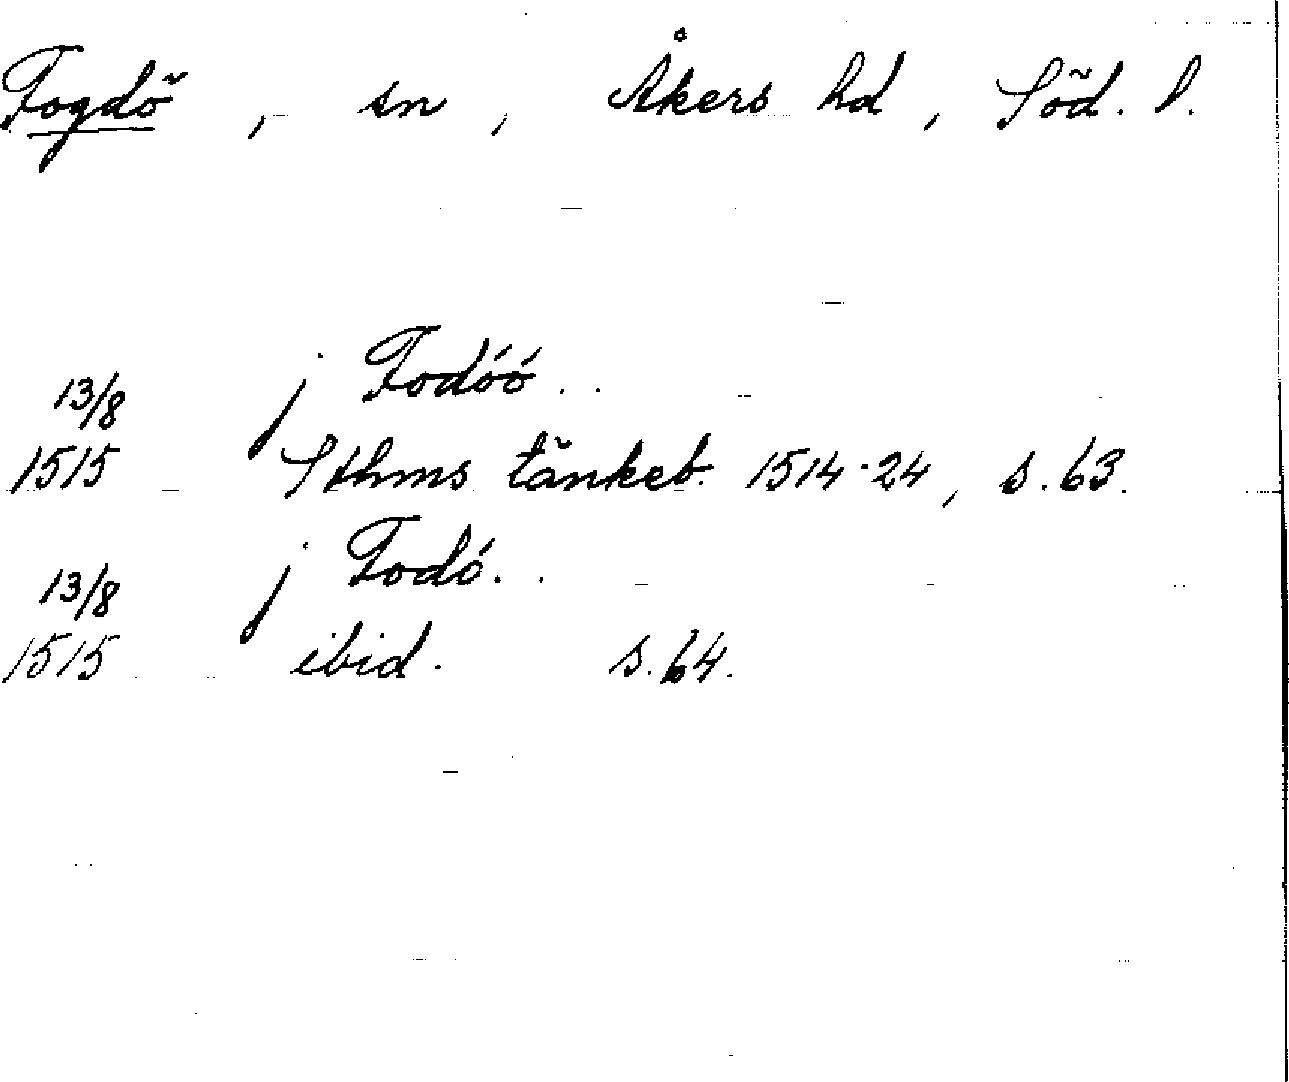 Fogdö, sn, Åkers hd, Söd. l.
13/8 j Fodóó..
1515 Sthms tänkeb. 1514-24, s. 63.
13/8 j Fodó..
1515 ibid. s. 64.